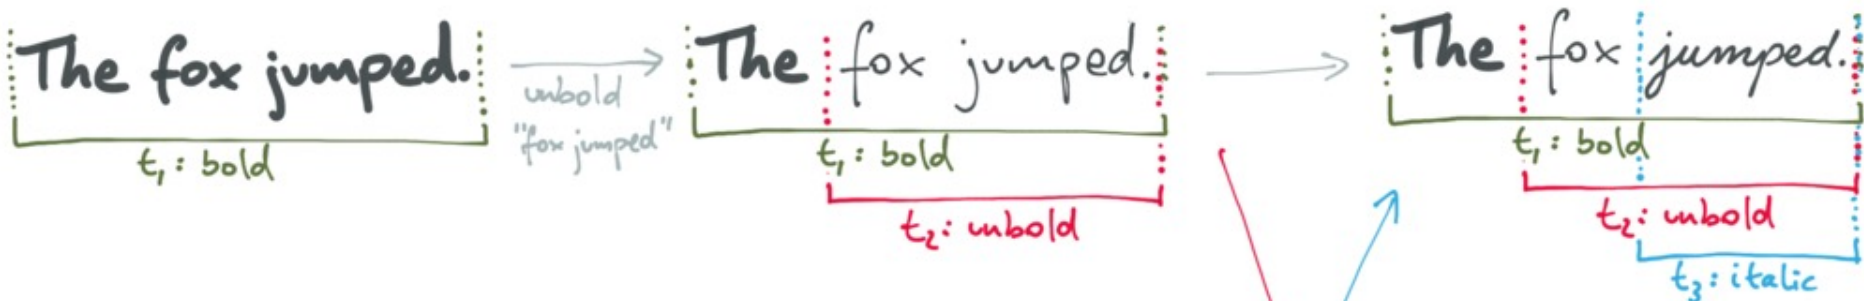 The fox jumped.
t₁: bold
unbold
"fox jumped"
The fox jumped.
t₁: bold
t₂: unbold
The fox jumped.
t₁: bold
t₂: unbold
t₃: italic